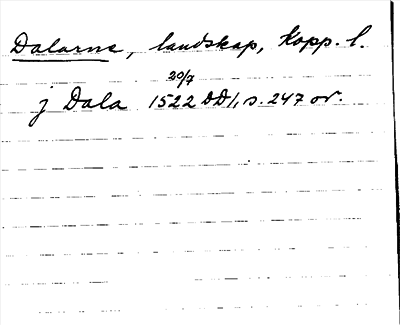 Dalarne, landskap, Kopp. l.
20/7
j Dala 1522 DD1, s. 247 or.